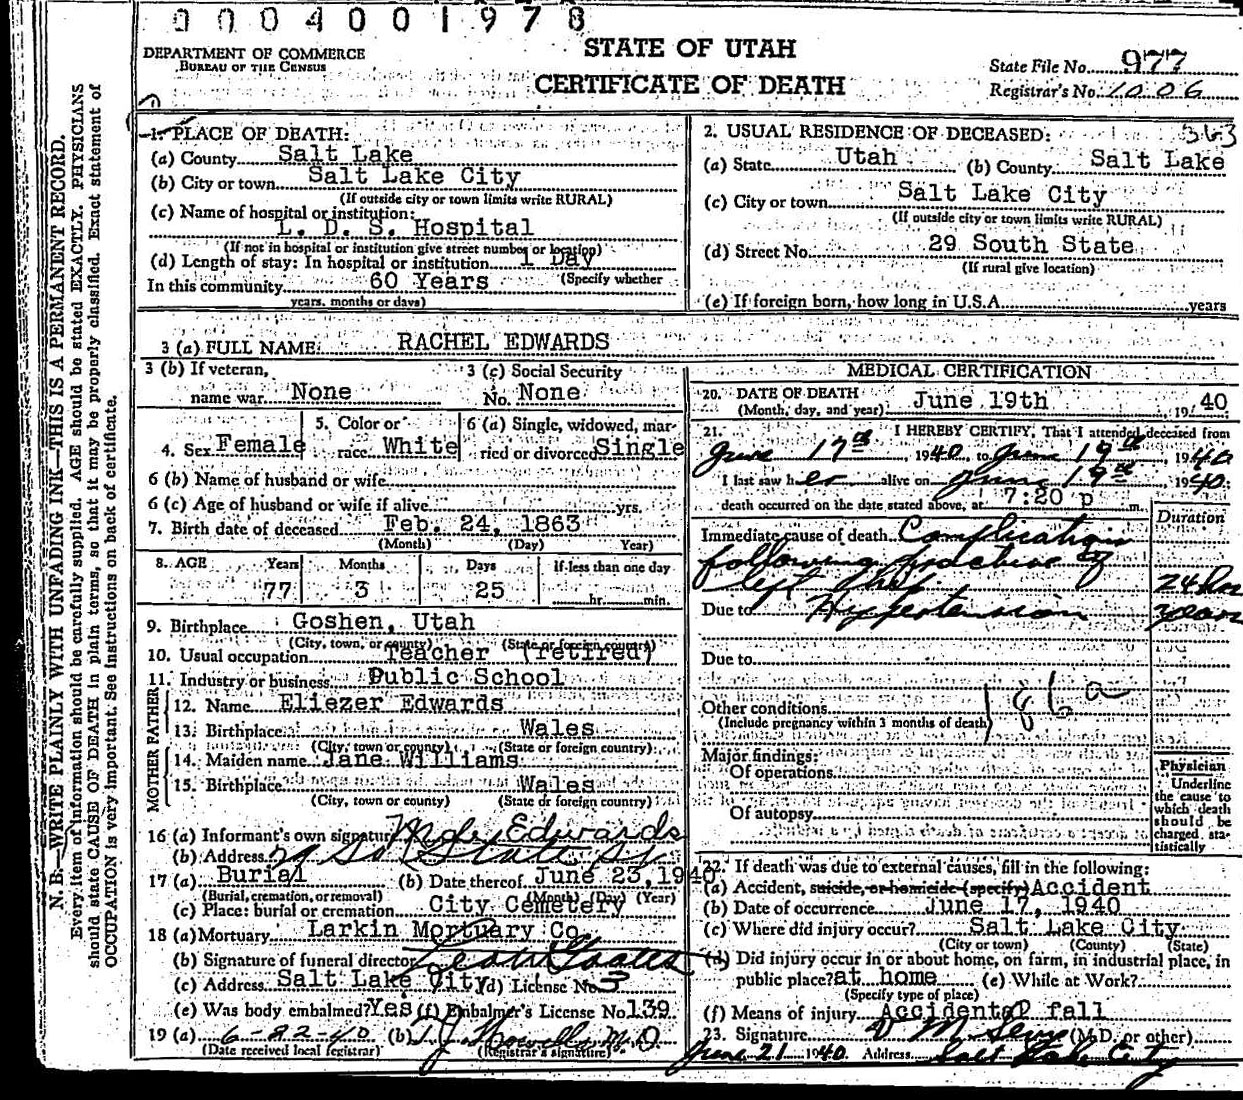 0004001978
DEPARTMENT OF COMMERCE
BUREAU OF THE CENSUS
STATE OF UTAH
CERTIFICATE OF DEATH
State File No. 977
Registrar's No. 1006
N. B.—WRITE PLAINLY WITH UNFADING INK—THIS IS A PERMANENT RECORD.
Every item of information should be carefully supplied. AGE should be stated EXACTLY. PHYSICIANS
should state CAUSE OF DEATH in plain terms, so that it may be properly classified. Exact statement of
OCCUPATION is very important. See instructions on back of certificate.
1. PLACE OF DEATH:
(a) County Salt Lake
(b) City or town Salt Lake City
(If outside city or town limits write RURAL)
(c) Name of hospital or institution:
L. D. S. Hospital
(If not in hospital or institution give street number or location)
(d) Length of stay: In hospital or institution 1 Day
In this community 60 Years (Specify whether
years, months or days)
2. USUAL RESIDENCE OF DECEASED: 363
(a) State Utah (b) County Salt Lake
(c) City or town Salt Lake City
(If outside city or town limits write RURAL)
(d) Street No. 29 South State
(If rural give location)
(e) If foreign born, how long in U.S.A. years
3 (a) FULL NAME: RACHEL EDWARDS
3 (b) If veteran, name war None
3 (c) Social Security No. None
4. Sex Female
5. Color or race White
6 (a) Single, widowed, married or divorced Single
6 (b) Name of husband or wife
6 (c) Age of husband or wife if alive yrs.
7. Birth date of deceased Feb. 24, 1863
(Month) (Day) Year)
8. AGE Years Months Days If less than one day
77 3 25 hr. min.
9. Birthplace Goshen, Utah
(City, town, or county) (State or foreign country)
10. Usual occupation Teacher (retired)
11. Industry or business Public School
FATHER
12. Name Eliezer Edwards
13. Birthplace Wales
(City, town or county) (State or foreign country)
MOTHER
14. Maiden name Jane Williams
15. Birthplace Wales
(City, town or county) (State or foreign country)
16 (a) Informant's own signature Edwards
(b) Address 29 So State St
17 (a) Burial (b) Date thereof June 23, 1940
(Burial, cremation, or removal) (Month) (Day) (Year)
(c) Place: burial or cremation City Cemetery
18 (a) Mortuary Larkin Mortuary Co
(b) Signature of funeral director
(c) Address Salt Lake City (d) License No. 3
(e) Was body embalmed? Yes (f) Embalmer's License No. 139
19 (a) 6-22-40 (b) M.D
(Date received local registrar) (Registrar's signature)
MEDICAL CERTIFICATION
20. DATE OF DEATH June 19th 1940
(Month, day, and year)
21. I HEREBY CERTIFY, That I attended deceased from
June 17th, 1940, to June 19th, 1940
I last saw her alive on June 19th, 1940;
death occurred on the date stated above, at 7:20 p m.
Duration
Immediate cause of death Complications
following fracture of
left hip 24 hrs
Due to Hypertension years
Due to
Other conditions
(Include pregnancy within 3 months of death)
186 a
Major findings:
Of operations
Of autopsy
Physician
Underline
the cause to
which death
should be
charged statistically
22. If death was due to external causes, fill in the following:
(a) Accident, suicide, or homicide (specify) Accident
(b) Date of occurrence June 17, 1940
(c) Where did injury occur? Salt Lake City
(City or town) (County) (State)
(d) Did injury occur in or about home, on farm, in industrial place, in
public place? at home (e) While at Work?
(Specify type of place)
(f) Means of injury Accidental fall
23. Signature (M.D. or other)
June 21 1940 Address Salt Lake City